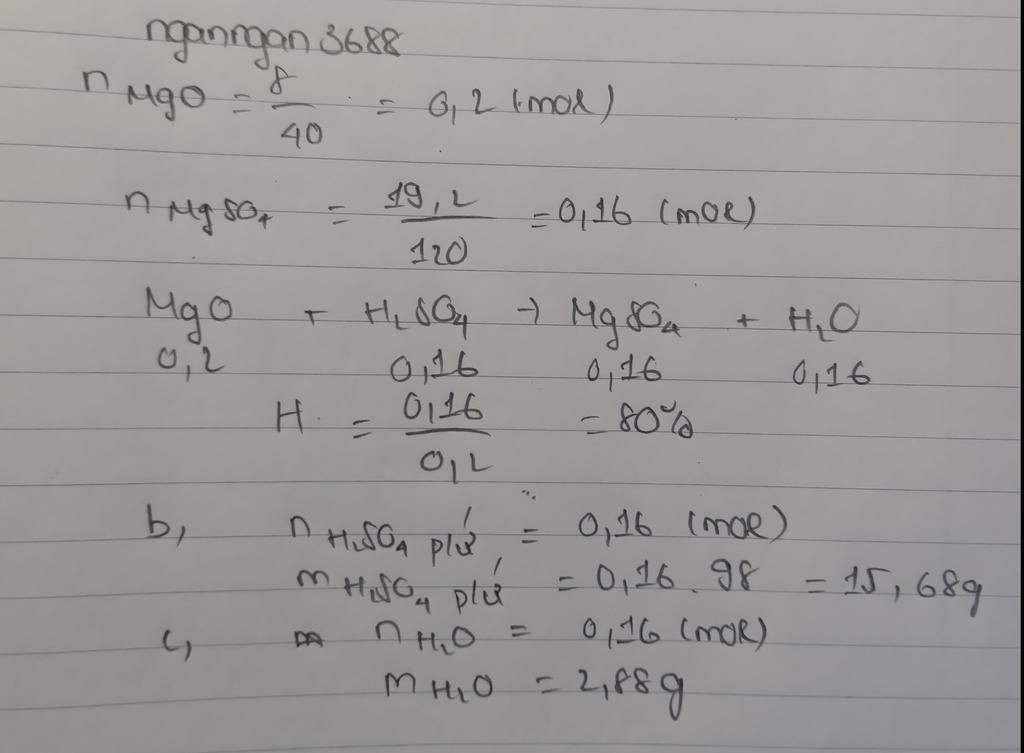 nganngan3688
n MgO = 8/40 = 0,2 (mol)
n MgSO4 = 19,2/120 = 0,16 (mol)
MgO + H2SO4 → MgSO4 + H2O
0,2 0,16 0,16 0,16
H = 0,16/0,2 = 80%
b, n H2SO4 p/ứ = 0,16 (mol)
m H2SO4 p/ứ = 0,16 . 98 = 15,68g
c, n H2O = 0,16 (mol)
m H2O = 2,88g